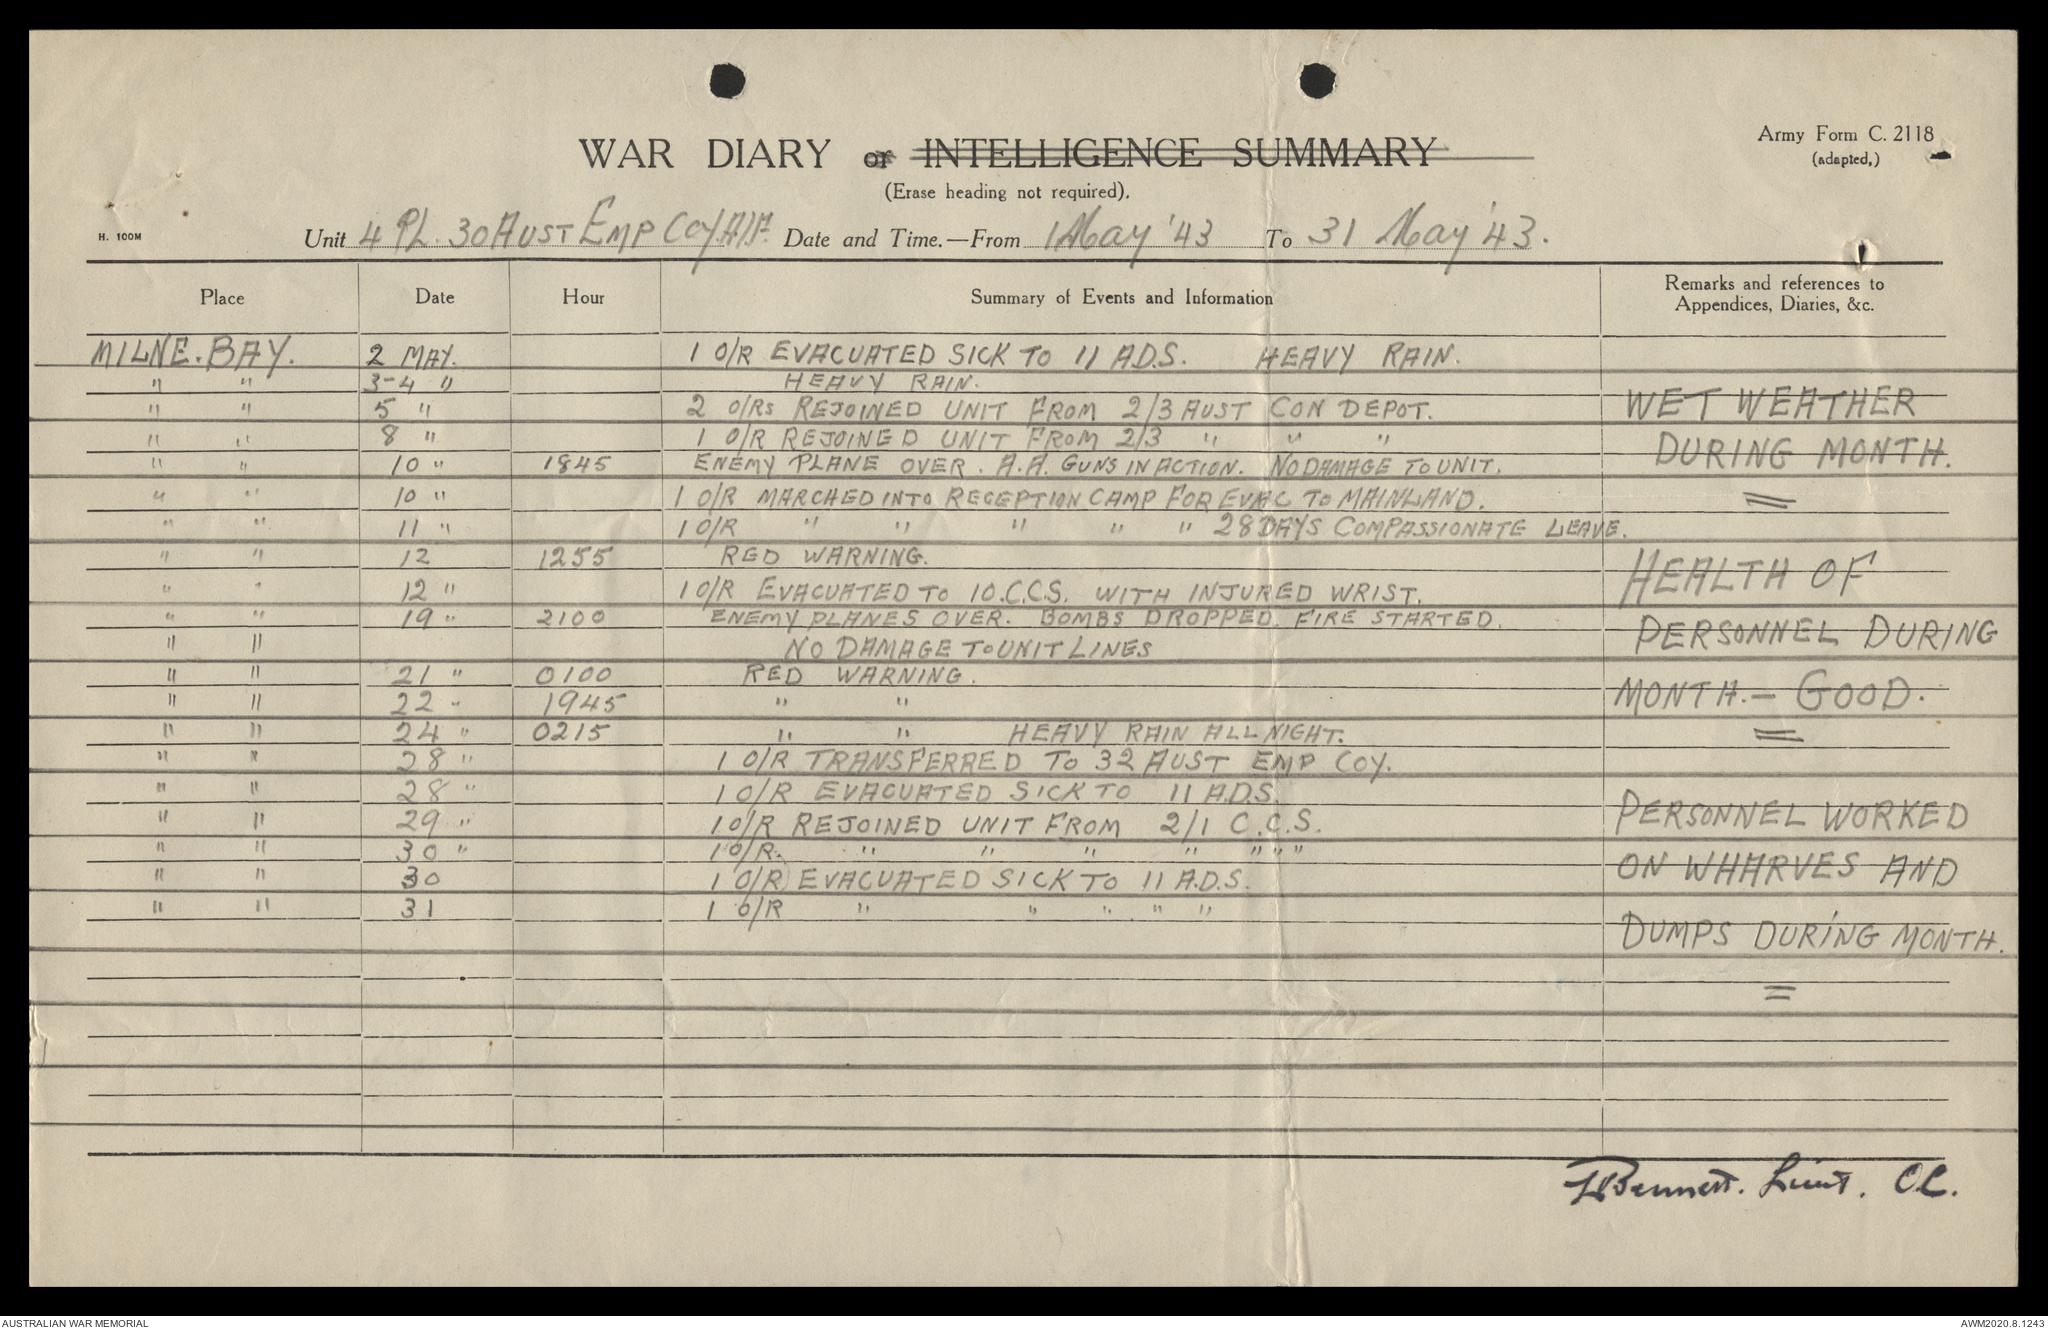 Army Form C. 2118
(adapted,)
WAR DIARY or INTELLIGENCE SUMMARY
(Erase heading not required).
H. 100M
Unit 4 PL. 30 AUST EMP COY. AIF. Date and Time.—From 1 May '43 To 31 May '43.
Place Date Hour Summary of Events and Information Remarks and references to Appendices, Diaries, &c.
MILNE. BAY. 2 MAY. 1 O/R EVACUATED SICK TO 11 A.D.S. HEAVY RAIN.
" " 3-4 " HEAVY RAIN.
" " 5 " 2 O/Rs REJOINED UNIT FROM 2/3 AUST CON DEPOT. WET WEATHER
" " 8 " 1 O/R REJOINED UNIT FROM 2/3 " " " DURING MONTH.
" " 10 " 1845 ENEMY PLANE OVER. A.A. GUNS IN ACTION. NO DAMAGE TO UNIT.
" " 10 " 1 O/R MARCHED INTO RECEPTION CAMP FOR EVAC TO MAINLAND.
" " 11 " 1 O/R " " " " " 28 DAYS COMPASSIONATE LEAVE.
" " 12 1255 RED WARNING. HEALTH OF
" " 12 " 1 O/R EVACUATED TO 10.C.C.S. WITH INJURED WRIST.
" " 19 " 2100 ENEMY PLANES OVER. BOMBS DROPPED. FIRE STARTED. PERSONNEL DURING
" " NO DAMAGE TO UNIT LINES
" " 21 " 0100 RED WARNING.
" " 22 " 1945 " " MONTH. — GOOD.
" " 24 " 0215 " " HEAVY RAIN ALL NIGHT.
" " 28 " 1 O/R TRANSFERRED TO 32 AUST EMP COY.
" " 28 " 1 O/R EVACUATED SICK TO 11 A.D.S.
" " 29 " 1 O/R REJOINED UNIT FROM 2/1 C.C.S. PERSONNEL WORKED
" " 30 " 1 O/R. " " " " " " "
" " 30 1 O/R EVACUATED SICK TO 11 A.D.S. ON WHARVES AND
" " 31 1 O/R " " " " "
DUMPS DURING MONTH.
Bennett. Lieut. O.C.
AUSTRALIAN WAR MEMORIAL
AWM2020.8.1243